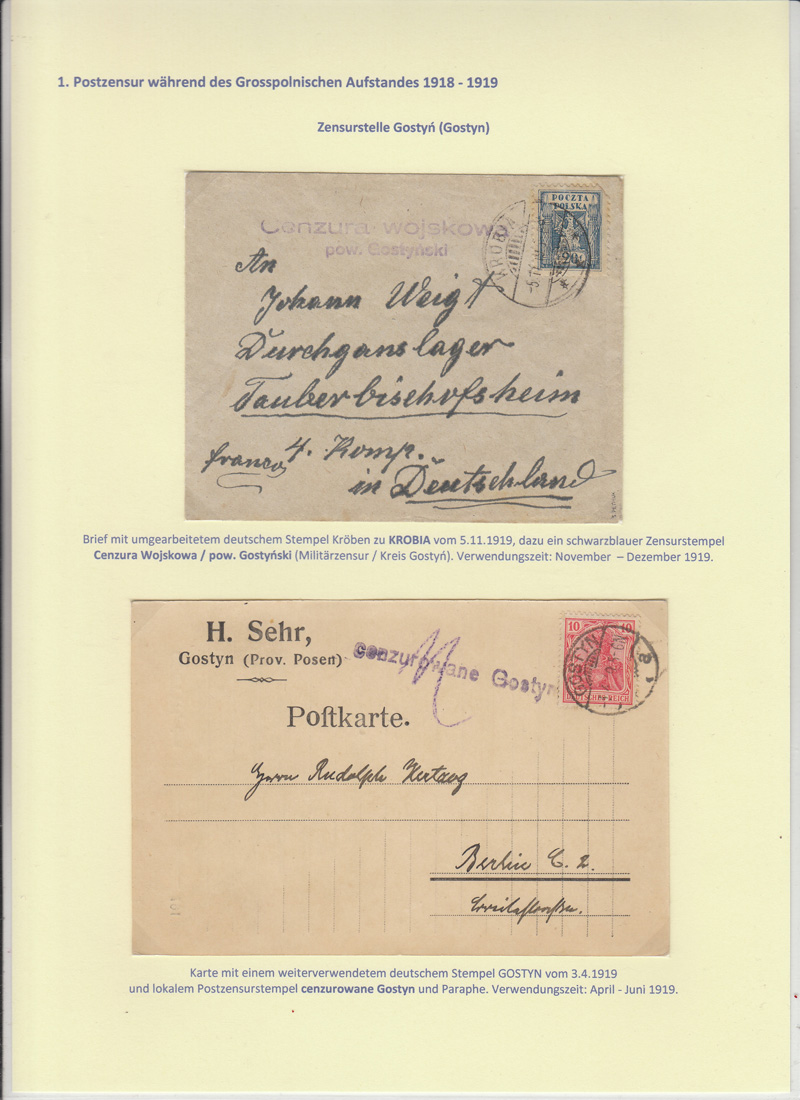 1. Postzensur während des Grosspolnischen Aufstandes 1918 - 1919
Zensurstelle Gostyń (Gostyn)
POCZTA
POLSKA
20
Cenzura wojskowa
pow. Gostyński
KROBIA
5.11
An
Johann Weigt
Durchganslager
Tauberbischofsheim
4. Komp.
franco
in Deutschland
Brief mit umgearbeitetem deutschem Stempel Kröben zu KROBIA vom 5.11.1919, dazu ein schwarzblauer Zensurstempel
Cenzura Wojskowa / pow. Gostyński (Militärzensur / Kreis Gostyń). Verwendungszeit: November – Dezember 1919.
H. Sehr,
Gostyn (Prov. Posen)
cenzurowane Gostyn
10 10
DEUTSCHES REICH
GOSTYN
Postkarte.
Herrn Rudolph Hertzog
Berlin C. 2.
Breitestrasse.
Karte mit einem weiterverwendetem deutschem Stempel GOSTYN vom 3.4.1919
und lokalem Postzensurstempel cenzurowane Gostyn und Paraphe. Verwendungszeit: April - Juni 1919.